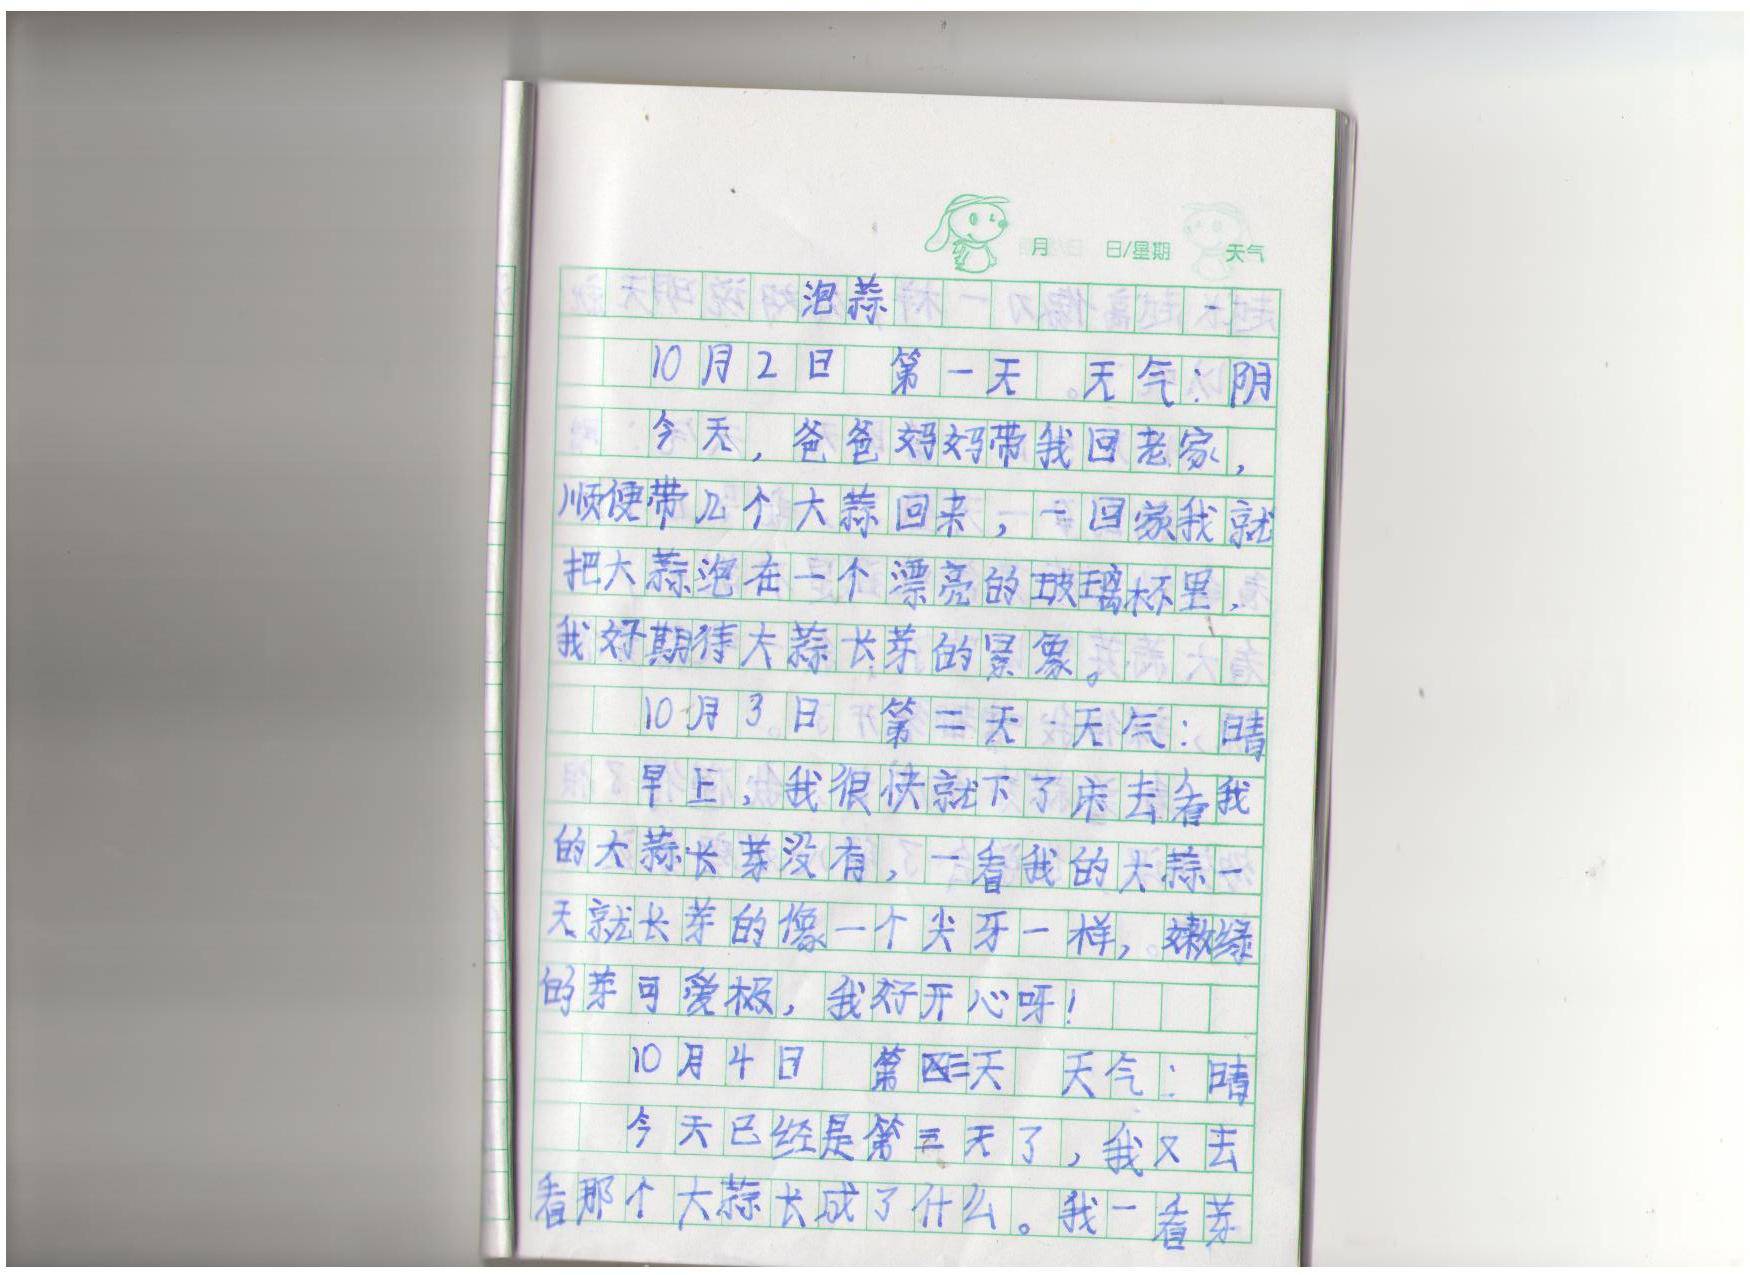 月 日/星期 天气
泡蒜
10月2日 第一天 天气：阴
今天，爸爸妈妈带我回老家，
顺便带几个大蒜回来，一回家我就
把大蒜泡在一个漂亮的玻璃杯里，
我好期待大蒜长芽的景象。
10月3日 第二天 天气：晴
早上，我很快就下了床去看我
的大蒜长芽没有，一看我的大蒜一
天就长芽的像一个尖牙一样，嫩绿
的芽可爱极，我好开心呀！
10月4日 第三天 天气：晴
今天已经是第三天了，我又去
看那个大蒜长成了什么。我一看芽